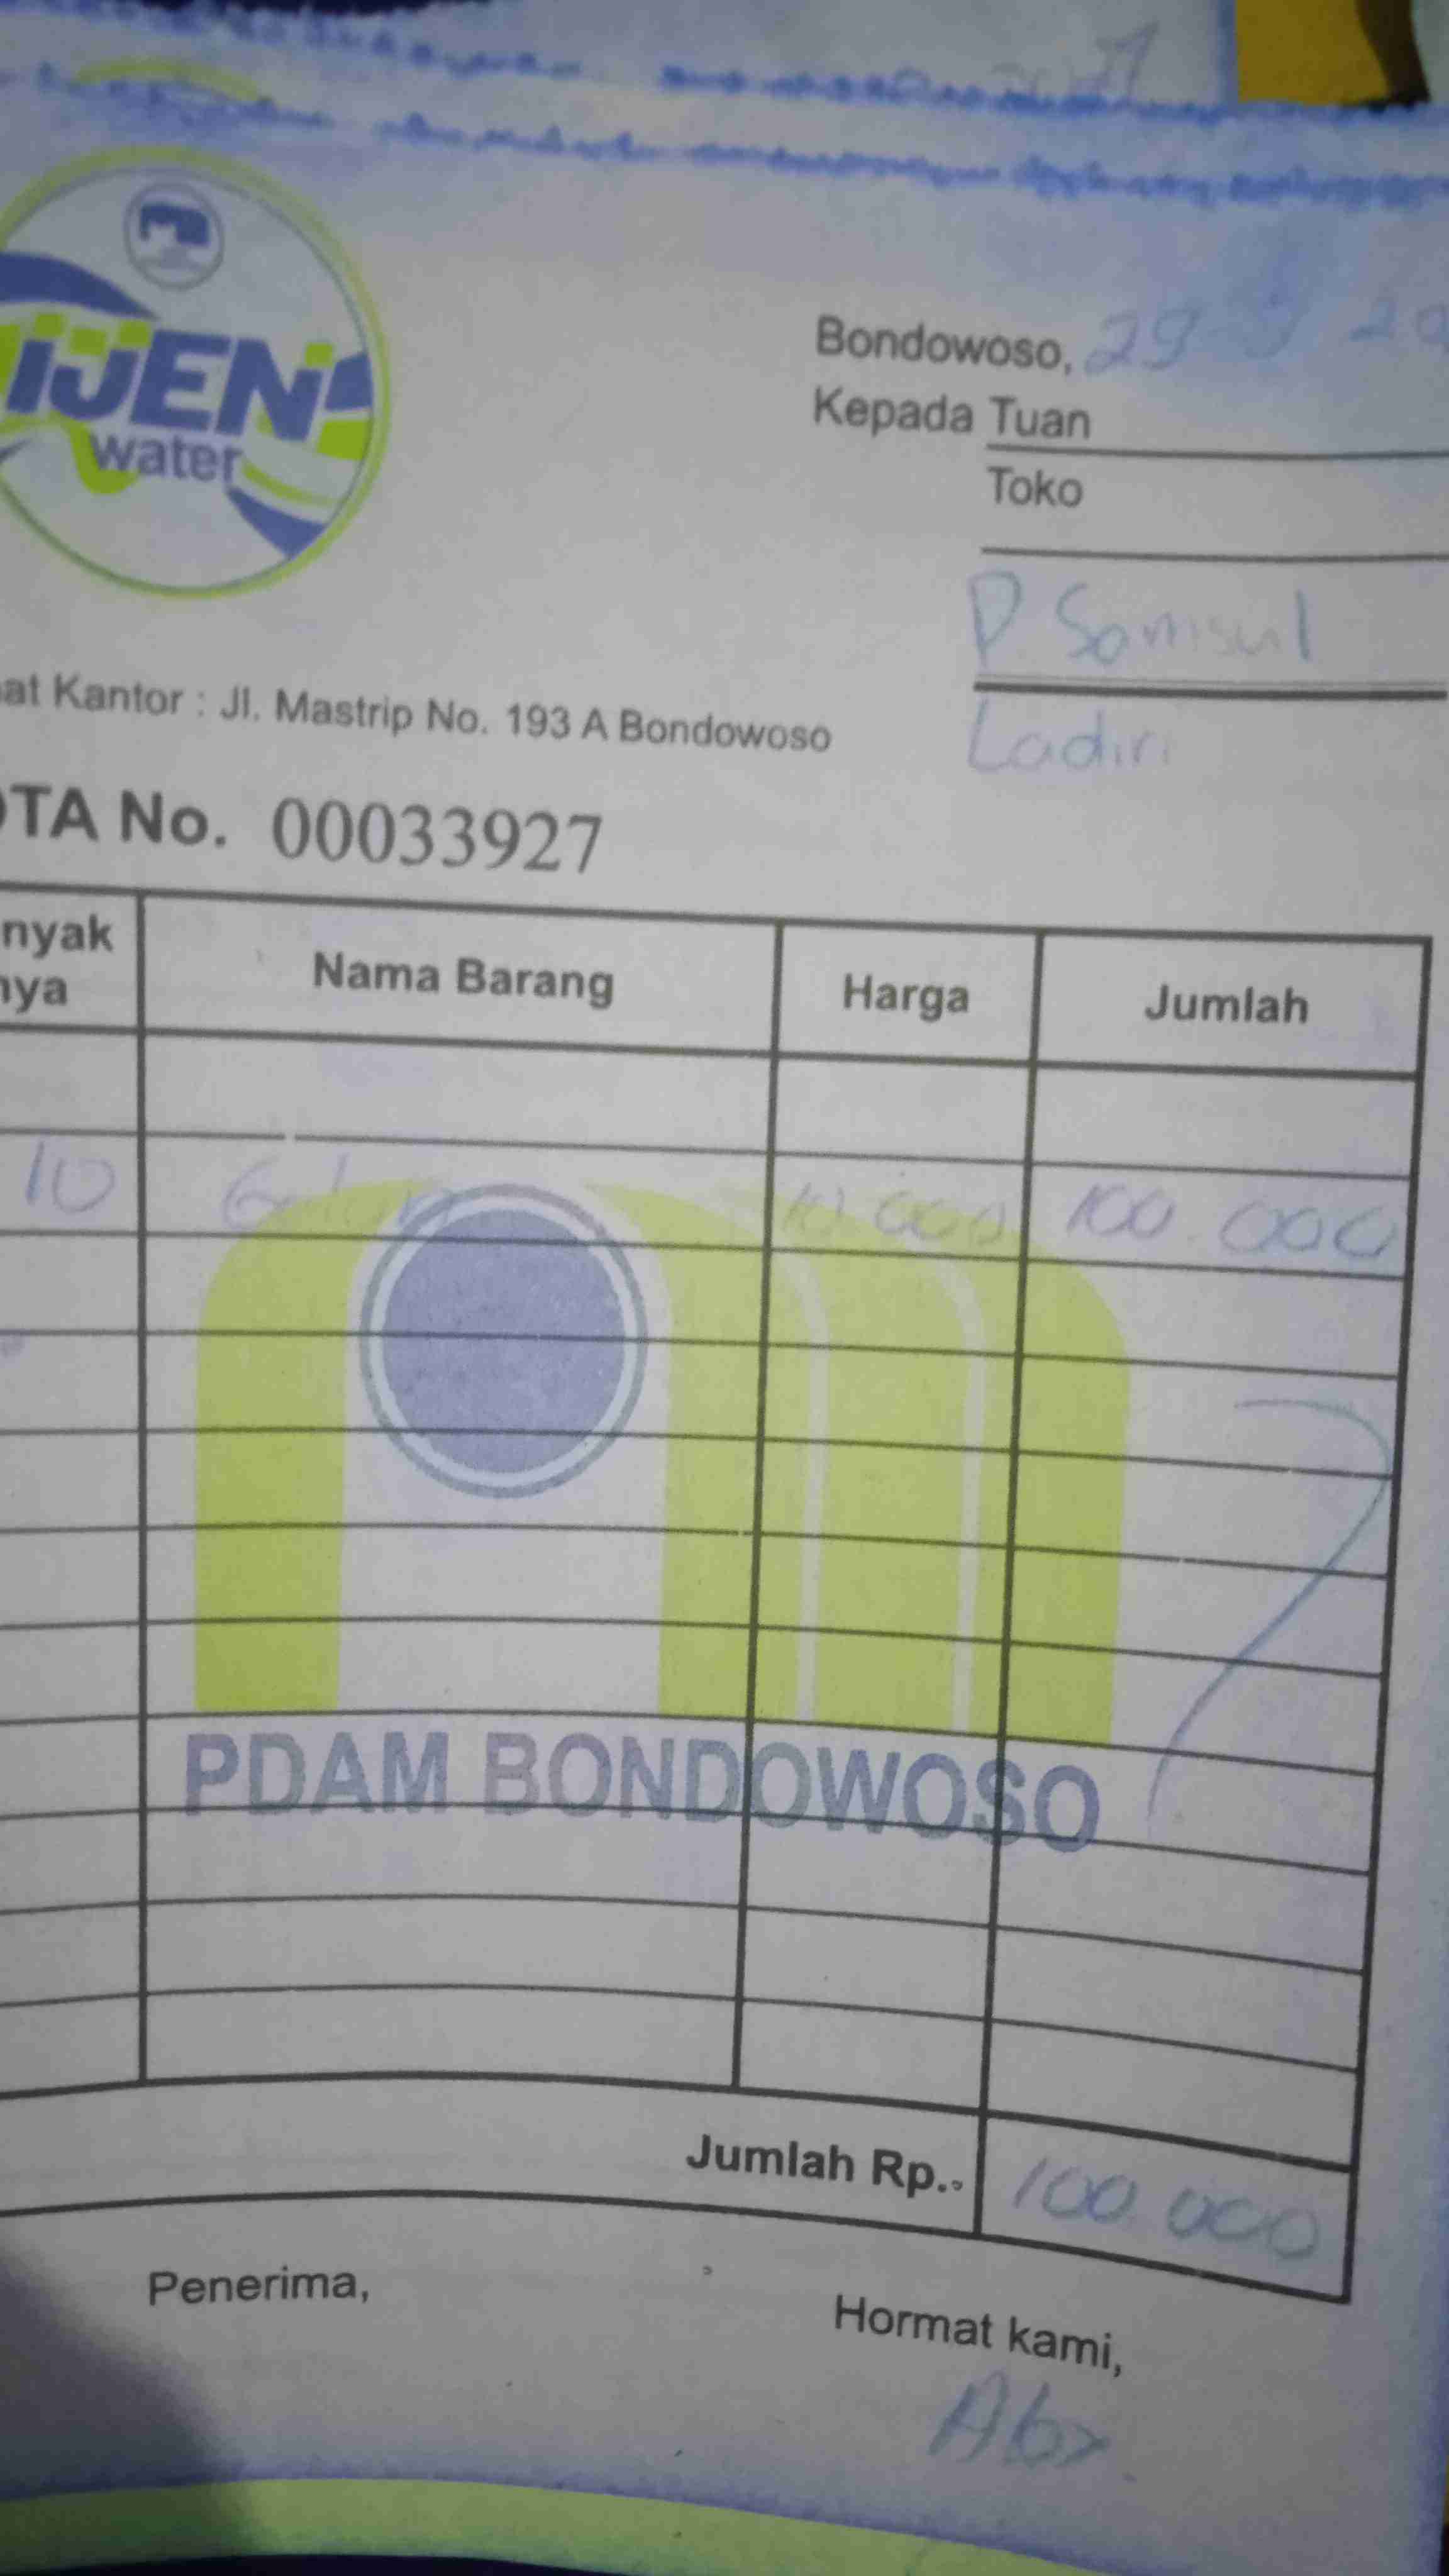 IJEN
water
Bondowoso, 29
Kepada Tuan
Toko
P Samsul
Ladiri
at Kantor : Jl. Mastrip No. 193 A Bondowoso
OTA No. 00033927
nyak
nya
Nama Barang
Harga
Jumlah
10 Galon 10.000 100.000
PDAM BONDOWOSO
Jumlah Rp.
100.000
Penerima,
Hormat kami,